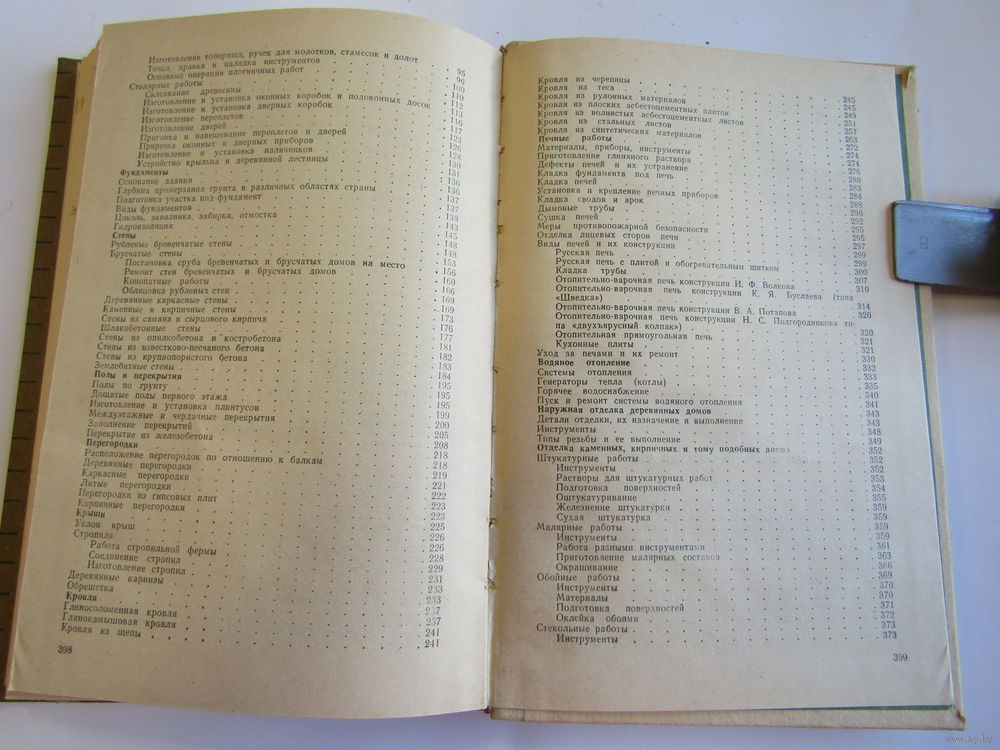 Изготовление топорища, ручек для молотков, стамесок и долот 95
Точка, правка и наладка инструментов 96
Основные операции плотничных работ 100
Столярные работы 110
Склеивание древесины 112
Изготовление и установка оконных коробок и подоконных досок 113
Изготовление и установка дверных коробок 116
Изготовление переплетов 117
Изготовление дверей 123
Пригонка и навешивание переплетов и дверей 126
Прирезка оконных и дверных приборов 128
Изготовление и установка наличников 130
Устройство крыльца и деревянной лестницы 131
Фундаменты 136
Основание здания 136
Глубина промерзания грунта в различных областях страны 137
Подготовка участка под фундамент 137
Виды фундаментов 138
Цоколь, завалинка, забирка, отмостка 143
Гидроизоляция 145
Стены 148
Рубленые бревенчатые стены 148
Брусчатые стены 153
Постановка сруба бревенчатых и брусчатых домов на место 156
Ремонт стен бревенчатых и брусчатых домов 160
Конопатные работы 166
Облицовка рубленых стен 169
Деревянные каркасные стены 169
Каменные и кирпичные стены 173
Стены из самана и сырцового кирпича 176
Шлакобетонные стены 177
Стены из опилкобетона и костробетона 181
Стены из известково-песчаного бетона 182
Стены из крупнопористого бетона 183
Землебитные стены 184
Полы и перекрытия 195
Полы по грунту 195
Дощатые полы первого этажа 195
Изготовление и установка плинтусов 199
Междуэтажные и чердачные перекрытия 200
Заполнение перекрытий 205
Перекрытие из железобетона 208
Перегородки 218
Расположение перегородок по отношению к балкам 218
Деревянные перегородки 219
Каркасные перегородки 221
Литые перегородки 222
Перегородки из гипсовых плит 223
Кирпичные перегородки 223
Крыши 225
Уклон крыш 226
Стропила 226
Работа стропильной фермы 228
Соединение стропил 229
Изготовление стропил 231
Деревянные карнизы 233
Обрешетка 233
Кровля 237
Глиносоломенная кровля 237
Глинокамышовая кровля 241
Кровля из щепы 241
398
Кровля из черепицы 245
Кровля из теса 245
Кровля из рулонных материалов 249
Кровля из плоских асбестоцементных плиток 251
Кровля из волнистых асбестоцементных листов 257
Кровля из стальных листов 263
Кровля из синтетических материалов 272
Печные работы 274
Материалы, приборы, инструменты 274
Приготовление глиняного раствора 276
Дефекты печей и их устранение 280
Кладка фундамента под печь 283
Кладка печей 284
Установка и крепление печных приборов 288
Кладка сводов и арок 290
Дымовые трубы 292
Сушка печей 295
Меры противопожарной безопасности 295
Отделка лицевых сторон печи 297
Виды печей и их конструкции 299
Русская печь 299
Русская печь с плитой и обогревательным щитком 300
Кладка трубы 307
Отопительно-варочная печь конструкции И. Ф. Волкова 310
Отопительно-варочная печь конструкции К. Я. Буслаева (типа
«Шведка») 314
Отопительно-варочная печь конструкции В. А. Потапова 320
Отопительно-варочная печь конструкции Н. С. Подгородникова ти-
па «двухъярусный колпак») 320
Отопительная прямоугольная печь 321
Кухонные плиты 321
Уход за печами и их ремонт 330
Водяное отопление 332
Системы отопления 333
Генераторы тепла (котлы) 335
Горячее водоснабжение 340
Пуск и ремонт системы водяного отопления 341
Наружная отделка деревянных домов 343
Детали отделки, их назначение и выполнение 343
Инструменты 348
Типы резьбы и ее выполнение 349
Отделка каменных, кирпичных и тому подобных домов 352
Штукатурные работы 352
Инструменты 352
Растворы для штукатурных работ 353
Подготовка поверхностей 354
Оштукатуривание 355
Железнение штукатурки 359
Сухая штукатурка 359
Малярные работы 359
Инструменты 359
Работа разными инструментами 361
Приготовление малярных составов 363
Окрашивание 366
Обойные работы 369
Инструменты 370
Материалы 370
Подготовка поверхностей 371
Оклейка обоями 372
Стекольные работы 373
Инструменты 373
399
8
www.ay.by